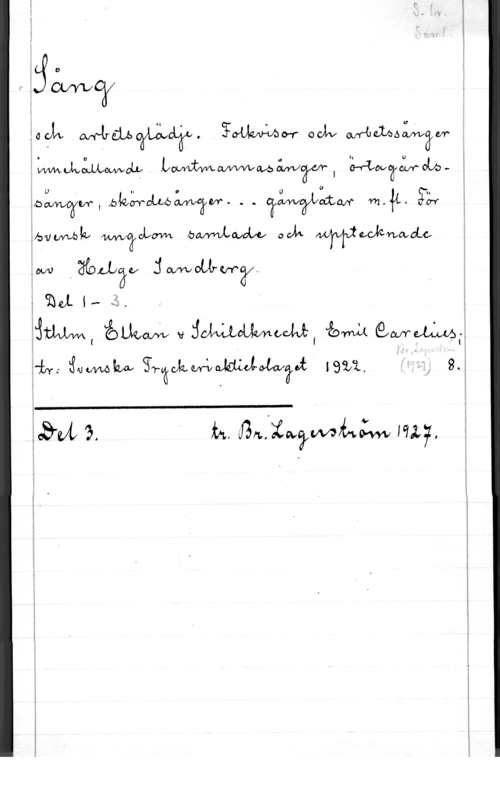 S. lir.
Saml.
Sång
och arbetsglädje. Folkvisor och arbetssånger
innehållande Lantmannasånger, örtagårds-
sånger, skördesånger... gånglåtar m.fl. För
svensk ungdom samlade och upptecknade
av Helge Sandberg.
Del 1 - 3.
Sthlm, Elkan v Schildknecht, Emil Carelius;
tr: Svenska Tryckeriaktiebolaget 1922. (1927) 8.
Del 3. tr. Br. Lagerström 1927.